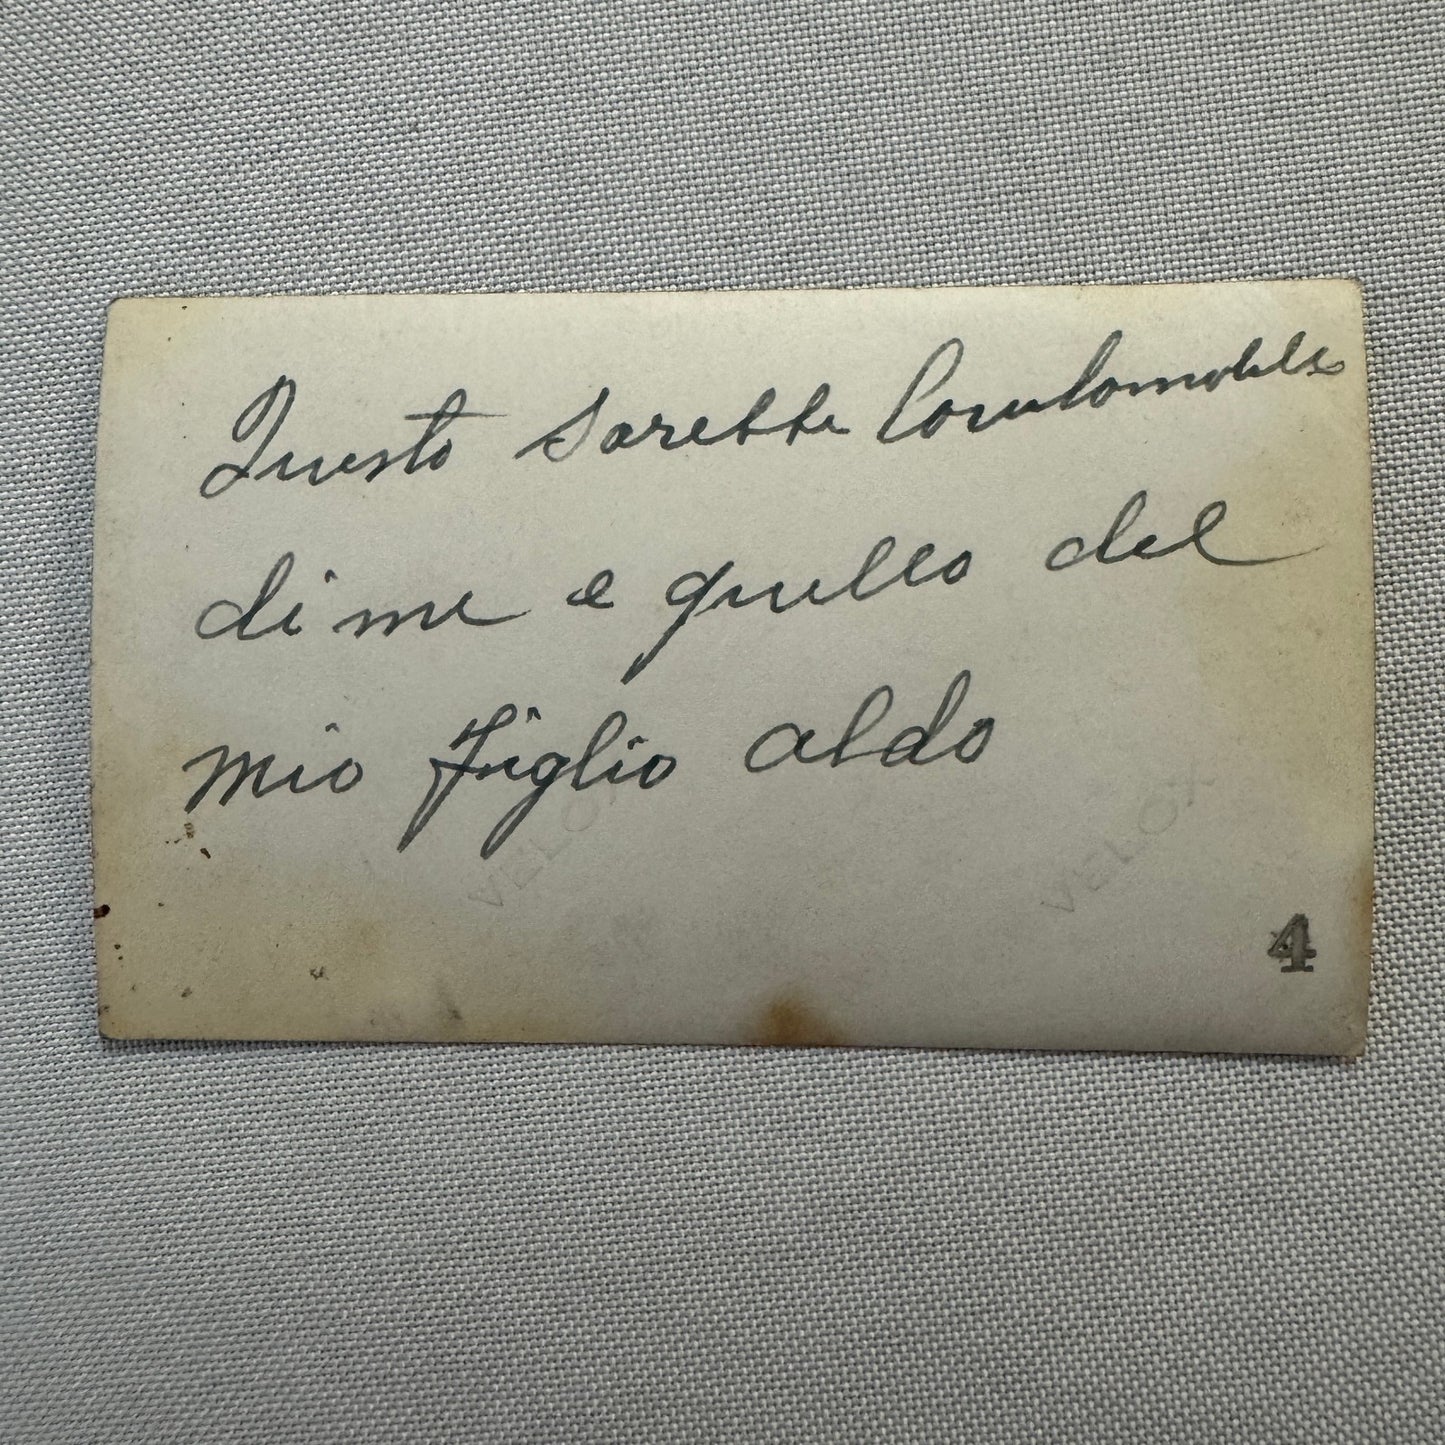 Questo sarebbe l'automobile
di me e quello del
mio figlio aldo
VELOX VELOX
4